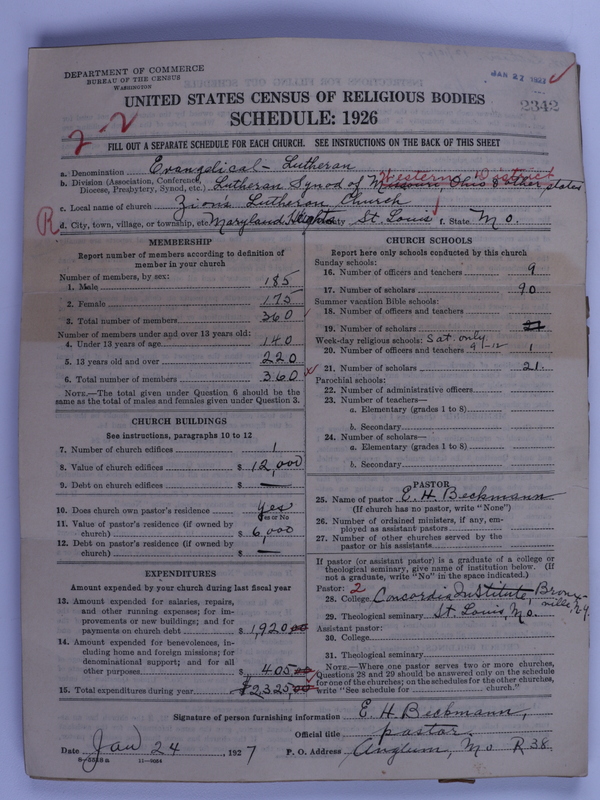 DEPARTMENT OF COMMERCE
BUREAU OF THE CENSUS
WASHINGTON
JAN 27 1927
2342
UNITED STATES CENSUS OF RELIGIOUS BODIES
SCHEDULE: 1926
2-2
FILL OUT A SEPARATE SCHEDULE FOR EACH CHURCH. SEE INSTRUCTIONS ON THE BACK OF THIS SHEET
a. Denomination Evangelical - Lutheran
Western District
b. Division (Association, Conference, Diocese, Presbytery, Synod, etc.) Lutheran Synod of Missouri, Ohio & other states
c. Local name of church Zion's Lutheran Church
R
d. City, town, village, or township, etc. Maryland Heights County St. Louis f. State Mo.
MEMBERSHIP
Report number of members according to definition of
member in your church
Number of members, by sex:
1. Male 185
2. Female 175
3. Total number of members 360
Number of members under and over 13 years old:
4. Under 13 years of age 140
5. 13 years old and over 220
6. Total number of members 360
NOTE.—The total given under Question 6 should be the
same as the total of males and females given under Question 3.
CHURCH BUILDINGS
See instructions, paragraphs 10 to 12
7. Number of church edifices 1
8. Value of church edifices $ 12,000
9. Debt on church edifices $ —
10. Does church own pastor's residence yes
Yes or No
11. Value of pastor's residence (if owned by
church) $ 6,000
12. Debt on pastor's residence (if owned by
church) $ —
EXPENDITURES
Amount expended by your church during last fiscal year
13. Amount expended for salaries, repairs,
and other running expenses; for im-
provements or new buildings; and for
payments on church debt $ 1,920.00
14. Amount expended for benevolences, in-
cluding home and foreign missions; for
denominational support; and for all
other purposes $ 405.00
15. Total expenditures during year $2,325.00
CHURCH SCHOOLS
Report here only schools conducted by this church
Sunday schools:
16. Number of officers and teachers 9
17. Number of scholars 90
Summer vacation Bible schools:
18. Number of officers and teachers
19. Number of scholars
Week-day religious schools: Sat. only
20. Number of officers and teachers 9-12 1
21. Number of scholars 21.
Parochial schools:
22. Number of administrative officers
23. Number of teachers—
a. Elementary (grades 1 to 8)
b. Secondary
24. Number of scholars—
a. Elementary (grades 1 to 8)
b. Secondary
PASTOR
25. Name of pastor E. H. Beckmann
(If church has no pastor, write "None")
26. Number of ordained ministers, if any, em-
ployed as assistant pastors
27. Number of other churches served by the
pastor or his assistants
If pastor (or assistant pastor) is a graduate of a college or
theological seminary, give name of institution below. (If
not a graduate, write "No" in the space indicated.)
Pastor: 2
28. College Concordia Institute, Bronx-
ville, N.Y.
29. Theological seminary St. Louis, Mo.
Assistant pastor:
30. College
31. Theological seminary
NOTE.—Where one pastor serves two or more churches,
Questions 28 and 29 should be answered only on the schedule
for one of the churches; on the schedules for the other churches,
write "See schedule for church."
Signature of person furnishing information E. H. Beckmann,
Official title pastor.
Date Jan 24 1927 P. O. Address Anglum, Mo R 38.